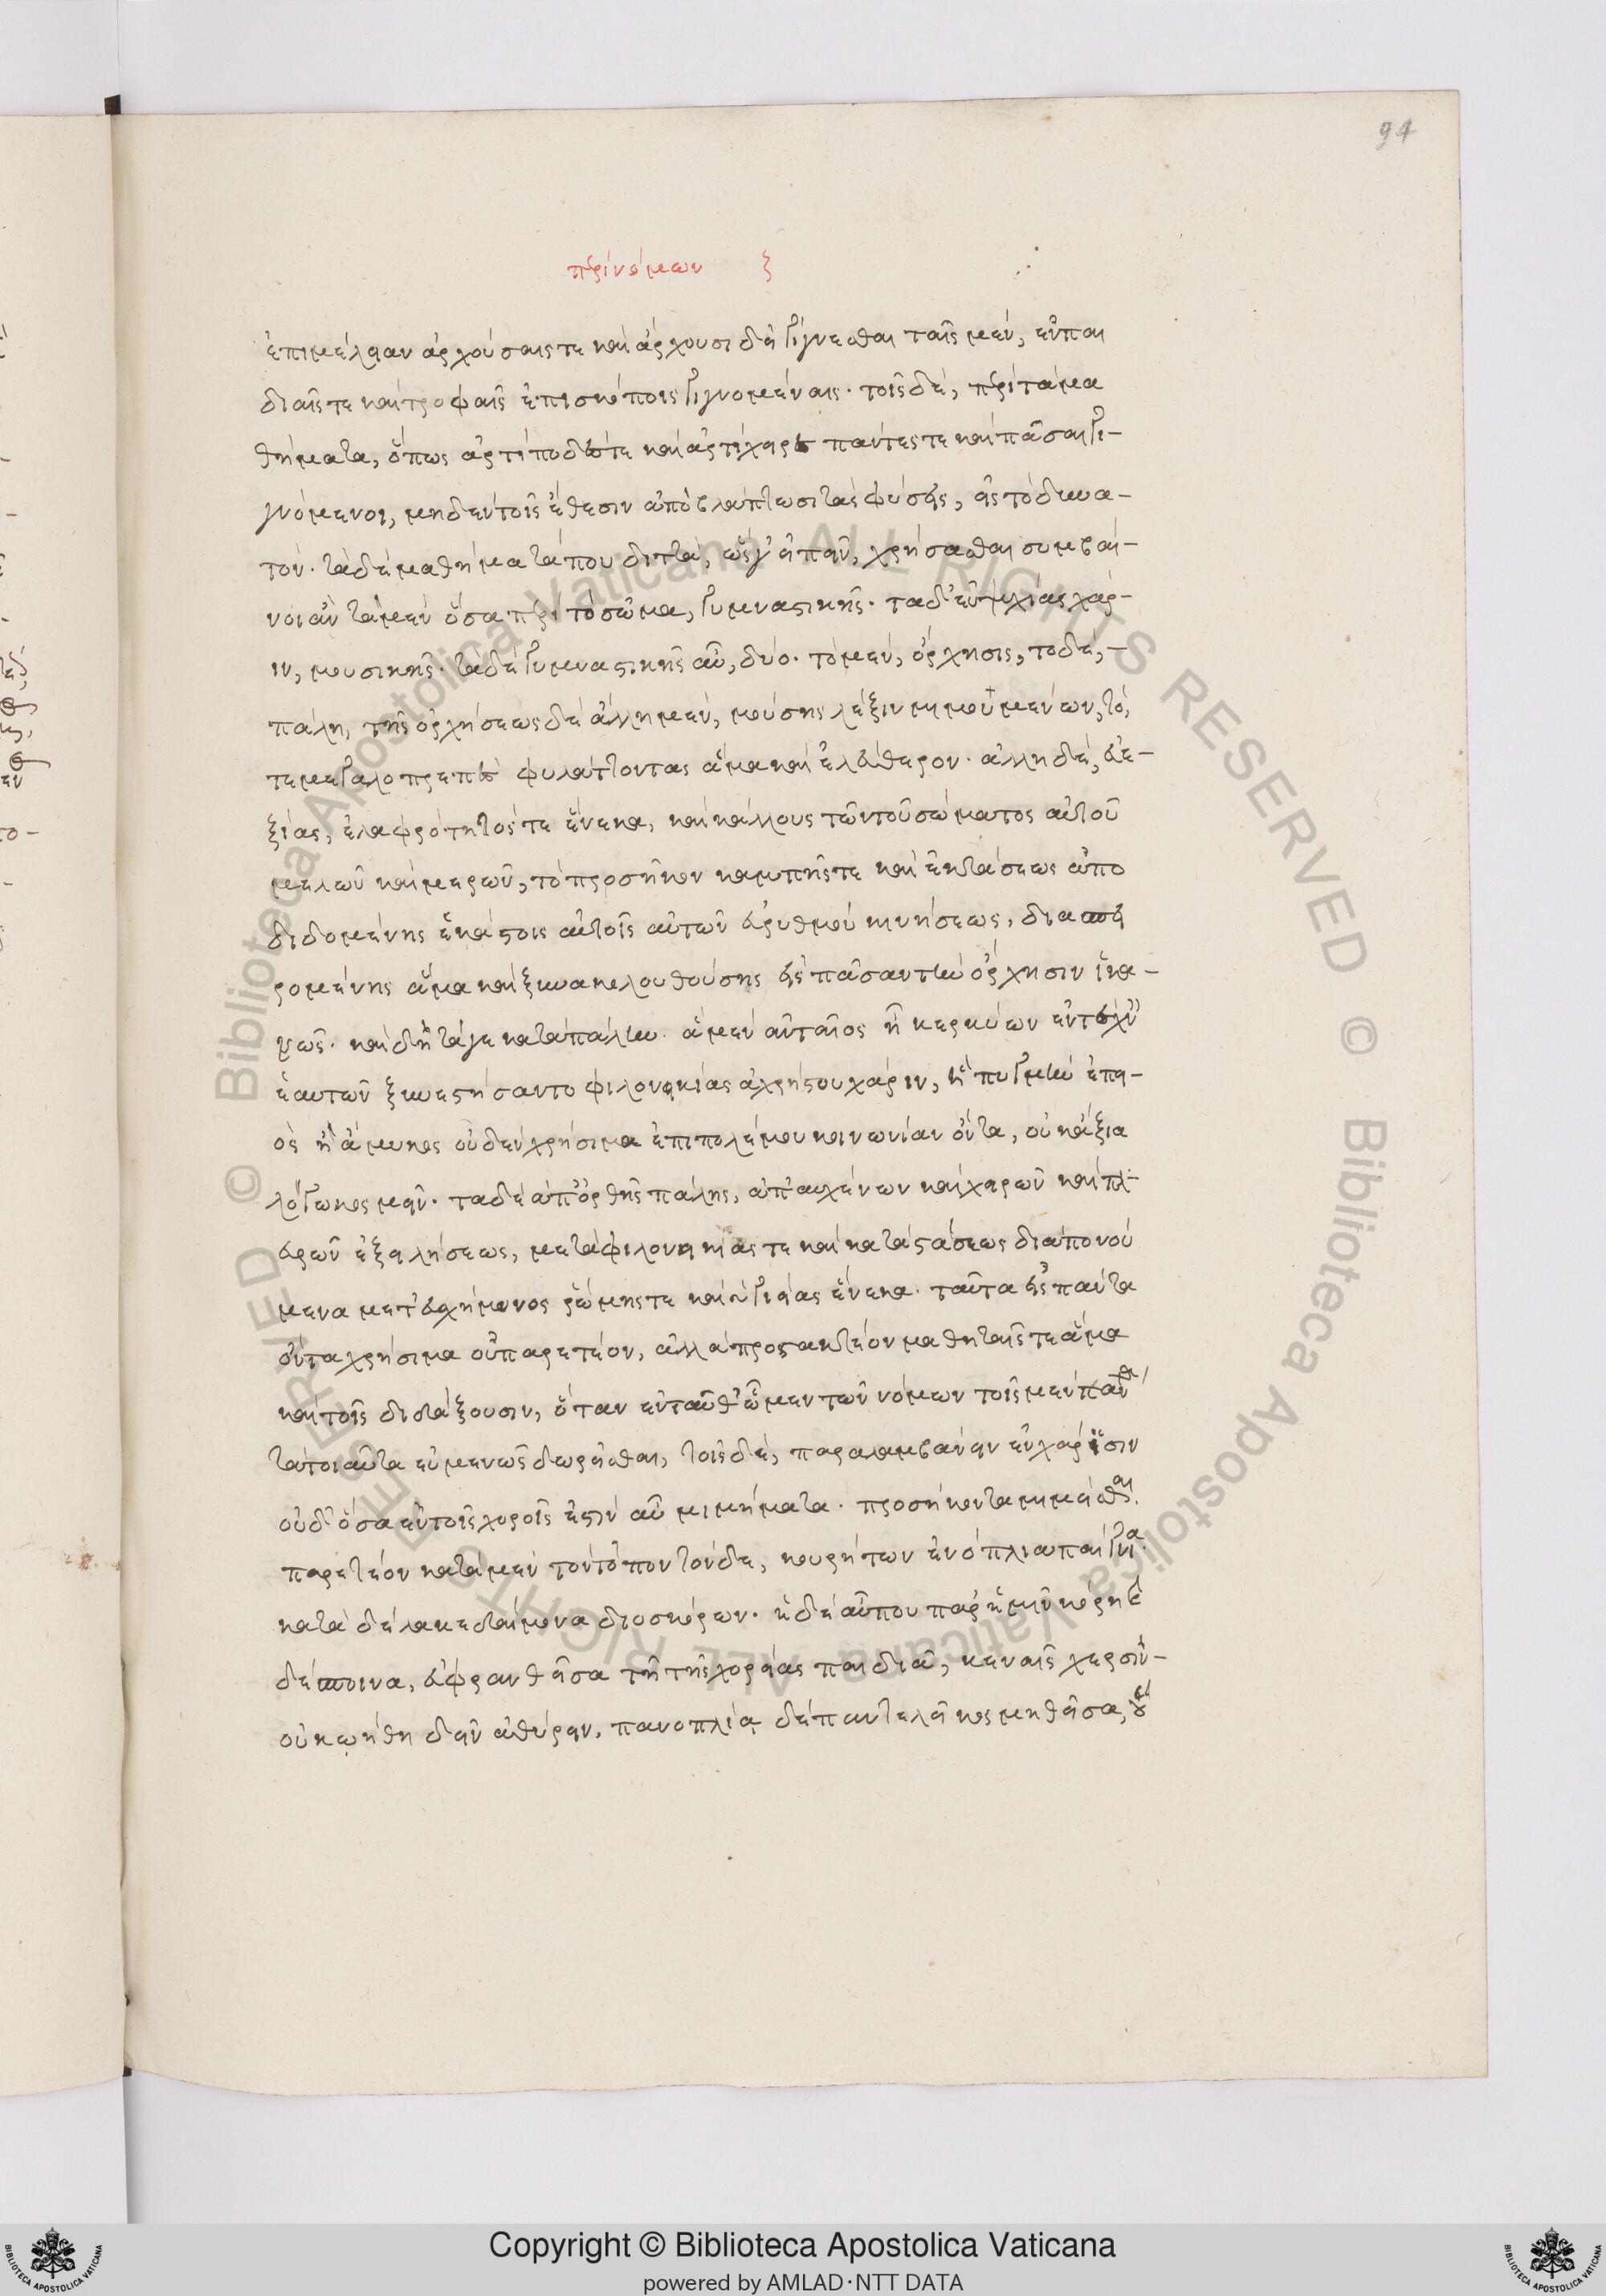 94
περὶ νόμων ζ
ἐπιμέλειαν ἀρχούσαις τε καὶ ἄρχουσι δεῖ γίγνεσθαι ταῖς μέν, ἐν παι
διαῖς τε καὶ τροφαῖς ἐπισκόποις γιγνομέναις· τοῖς δέ, περὶ τὰ μα
θήματα, ὅπως ἀρτίποδές τε καὶ ἀρτίχειρες πάντες τε καὶ πᾶσαι γι-
γνόμενοι, μηδὲν τοῖς ἔθεσιν ἀποβλάπτωσι τὰς φύσεις, εἰς τὸ δυνα-
τόν. τὰ δὲ μαθήματά που διττά, ὥς γ' εἰπεῖν, χρήσασθαι συμβαί-
νοι ἂν τὰ μὲν ὅσα περὶ τὸ σῶμα, γυμναστικῆς· τὰ δ' εὐψυχίας χάρ-
ιν, μουσικῆς. τὰ δὲ γυμναστικῆς αὖ, δύο· τὸ μέν, ὄρχησις, τὸ δέ, -
πάλη, τῆς ὀρχήσεως δὲ ἄλλη μέν, μούσης λέξιν μιμουμένων, τό,
τε μεγαλοπρεπὲς φυλάττοντας ἅμα καὶ ἐλεύθερον· ἄλλη δέ, εὐε-
ξίας, ἐλαφρότητός τε ἕνεκα, καὶ κάλλους τῶν τοῦ σώματος αὐτοῦ
μελῶν καὶ μερῶν, τὸ προσῆκον καμπῆς τε καὶ ἐκτάσεως ἀπο
διδομένης ἑκάστοις αὐτοῖς αὑτῶν εὐρύθμου κινήσεως, διασπει
ρομένης ἅμα καὶ ξυνακολουθούσης εἰς πᾶσαν τὴν ὄρχησιν ἱκα-
νῶς. καὶ δὴ τά γε κατὰ πάλην· ἃ μὲν ἀνταῖος ἢ κερκύων ἐν τέχν
ἑαυτῶν ξυνεστήσαντο φιλονεικίας ἀχρήστου χάριν, ἢ πυγμὴν ἐπει-
ὸς ἢ ἄμυκος οὐδὲν χρήσιμα ἐπὶ πολέμου κοινωνίαν ὄντα, οὐκ ἄξια
λόγῳ κοσμεῖν. τὰ δὲ ἀπ' ὀρθῆς πάλης, ἀπ' αὐχένων καὶ χειρῶν καὶ πλ-
ευρῶν ἐξειλήσεως, μετὰ φιλονεικίας τε καὶ καταστάσεως διαπονού
μενα μετ' εὐσχήμονος ῥώμης τε καὶ ὑγιείας ἕνεκα. ταῦτα εἰς πάντα
ὄντα χρήσιμα οὐ παρετέον, ἀλλὰ προστακτέον μαθηταῖς τε ἅμα
καὶ τοῖς διδάξουσιν, ὅταν ἐνταῦθ' ὦμεν τῶν νόμων τοῖς μὲν πάν
τὰ τοιαῦτα εὐμενῶς δωρεῖσθαι, τοῖς δέ, παραλαμβάνειν ἐν χάρισιν
οὐδ' ὅσα ἐν τοῖς χοροῖς ἐστὶν αὖ μιμήματα. προσήκοντα μιμεῖσθαι
παρετέον κατὰ μὲν τὸν τόπον τόνδε, κουρήτων ἐνόπλια παίγνια·
κατὰ δὲ λακεδαίμονα διοσκόρων. ἡ δὲ αὖ που παρ' ἡμῖν κόρη καὶ
δέσποινα, εὐφρανθεῖσα τῇ τῆς χορείας παιδιᾷ, κεναῖς χερσὶν-
οὐκ ᾠήθη δεῖν ἀθύρειν, πανοπλίᾳ δὲ παντελεῖ κοσμηθεῖσα,